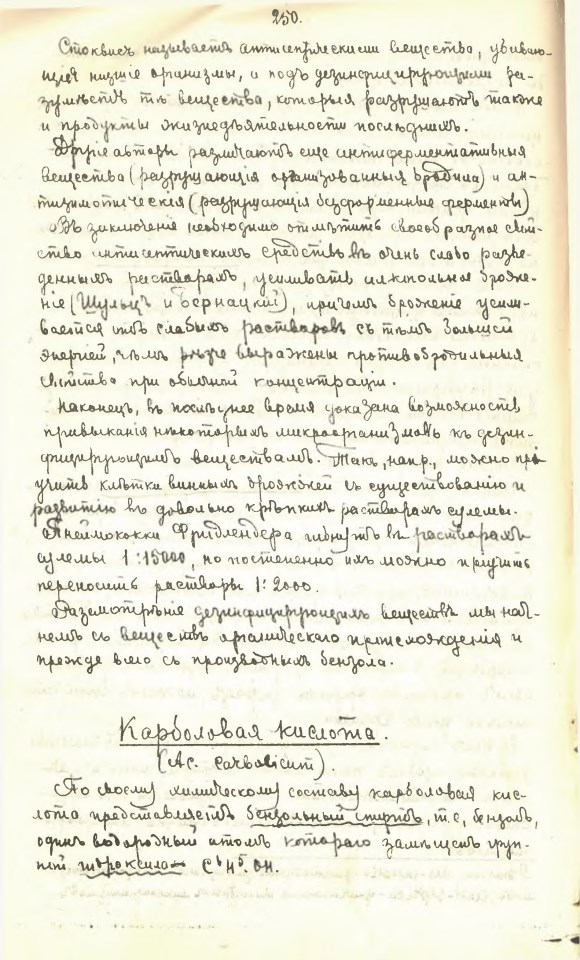 250.
Стоквисъ называетъ антисептическими вещества, убиваю-
щія низшіе организмы, и подъ дезинфицирующими ра-
зумѣетъ тѣ вещества, которыя разрушаютъ также
и продукты жизнедѣятельности послѣднихъ.
Другіе авторы различаютъ еще антиферментативныя
вещества (разрушающія организованныя бродила) и ан-
тизимотическія (разрушающія безформенные ферменты)
Въ заключеніе необходимо отмѣтить своеобразное свой-
ство антисептическихъ средствъ въ очень слабо разве-
денныхъ растворахъ, усиливать алкогольное броже-
ніе (Шульцъ и Бернацкій), причемъ броженіе усили-
вается отъ слабыхъ растворовъ съ тѣмъ большей
энергіей, чѣмъ рѣзче выражены противобродильныя
свойства при обычной концентраціи.
Наконецъ, въ послѣднее время доказана возможность
привыканія нѣкоторыхъ микроорганизмовъ къ дезин-
фицирующимъ веществамъ. Такъ, напр., можно прі-
учить клѣтки винныхъ дрожжей къ существованію и
развитію въ довольно крѣпкихъ растворахъ сулемы.
Пнеймококки Фридлендера гибнутъ въ растворахъ
сулемы 1:15000, но постепенно ихъ можно пріучить
переносить растворы 1:2000.
Разсмотрѣніе дезинфицирующихъ веществъ мы нач-
немъ съ веществъ органическаго происхожденія и
прежде всего съ производныхъ бензола.
Карболовая кислота.
(Ac. carbolicum).
По своему химическому составу карболовая кис-
лота представляетъ бензольный спиртъ, т.е, бензолъ,
одинъ водородный атомъ котораго замѣщенъ груп-
пой гидроксила C⁶H⁵.OH.